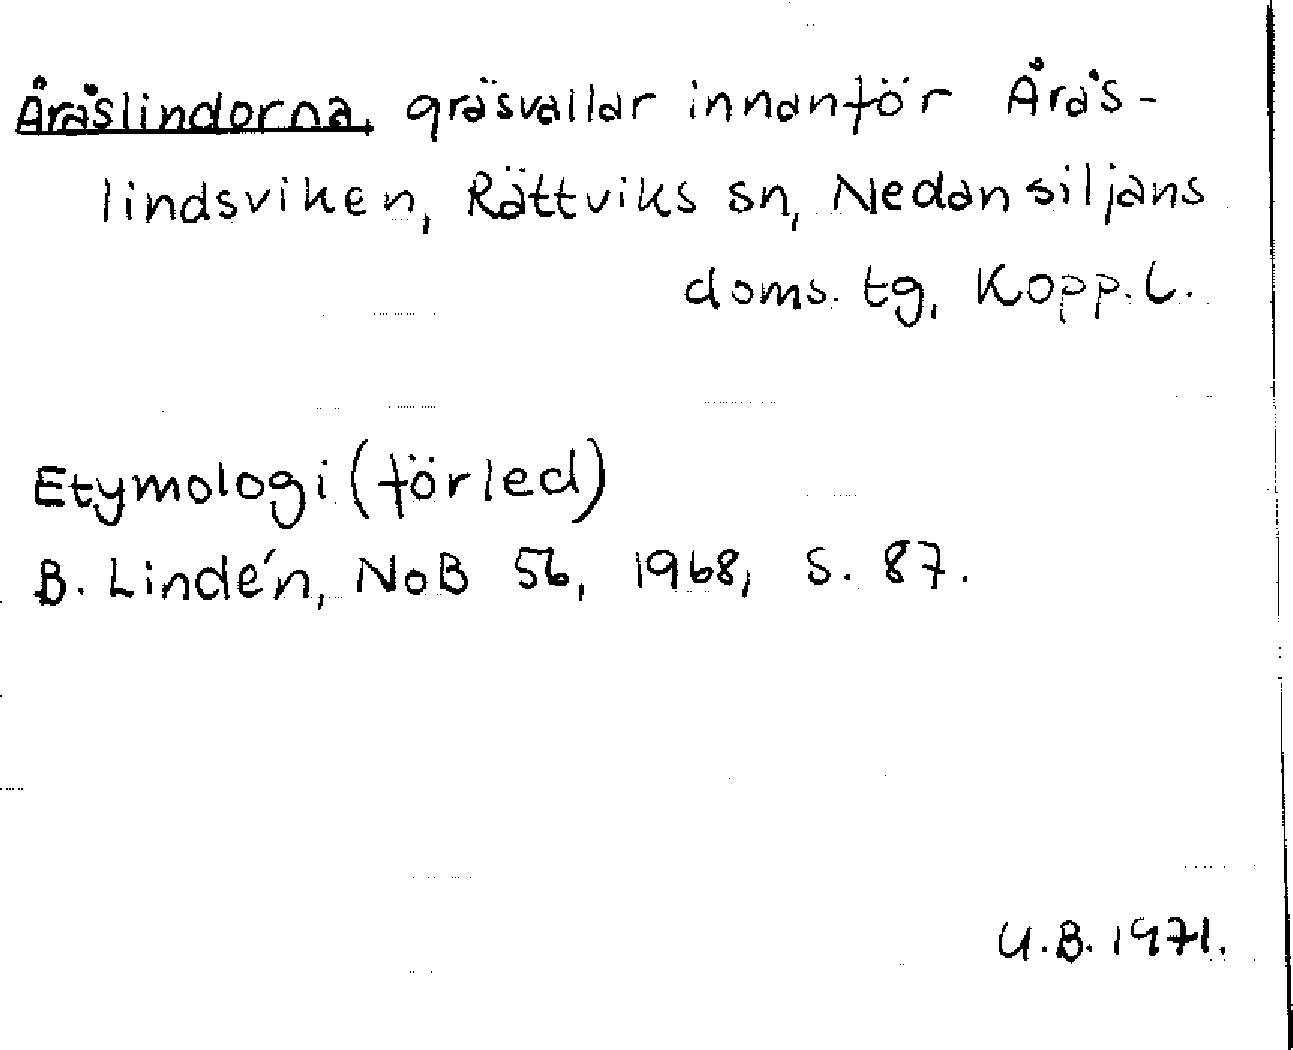 Åråslindorna, gräsvallar innanför Årås-
lindsviken, Rättviks sn, Nedansiljans
doms. tg, Kopp. L.
Etymologi (förled)
B. Lindén, NoB 56, 1968, s. 87.
U.B. 1971.